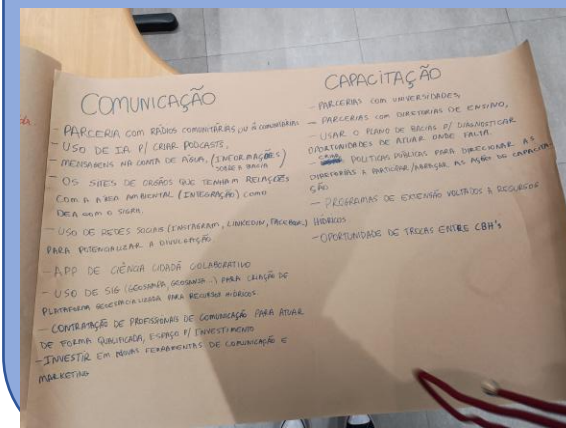 COMUNICAÇÃO
- PARCERIA COM RÁDIOS COMUNITÁRIAS
- USO DE IA P/ CRIAR PODCASTS,
- MENSAGENS NA CONTA DE ÁGUA, (INFORMAÇÕES SOBRE A BACIA)
- OS SITES DE ORGÃOS QUE TENHAM RELAÇÕES
COM A ÁREA AMBIENTAL (INTEGRAÇÃO) COMO
COM O SIGRH.
- USO DE REDES SOCIAIS (INSTAGRAM, LINKEDIN, FACEBOOK)
PARA POTENCIALIZAR A DIVULGAÇÃO
- APP DE CIÊNCIA CIDADÃ COLABORATIVO
- USO DE SIG PARA CRIAÇÃO DE
PLATAFORMA GEOESPACIALIZADA PARA RECURSOS HÍDRICOS.
- CONTRATAÇÃO DE PROFISSIONAIS DE COMUNICAÇÃO PARA ATUAR
DE FORMA QUALIFICADA, ESPAÇO P/ INVESTIMENTO
- INVESTIR EM NOVAS FERRAMENTAS DE COMUNICAÇÃO E
MARKETING
CAPACITAÇÃO
- PARCERIAS COM UNIVERSIDADES,
- PARCERIAS COM DIRETORIAS DE ENSINO,
- USAR O PLANO DE BACIAS P/ DIAGNOSTICAR
OPORTUNIDADES DE ATUAR ONDE FALTA.
- POLÍTICAS PÚBLICAS PARA DIRECIONAR AS
DIRETORIAS A PARTICIPAR/ABRAÇAR AS AÇÕES DE CAPACITA-
ÇÃO
- PROGRAMAS DE EXTENSÃO VOLTADOS A RECURSOS
HÍDRICOS
- OPORTUNIDADE DE TROCAS ENTRE CBH's